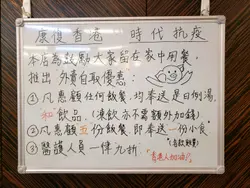 康復香港 時代抗疫
本店為鼓勵大家留在家中用餐,
推出 外賣自取優惠:
① 凡惠顧任何飯餐 均奉送是日例湯,
和飲品。(凍飲亦不需額外加錢)
② 凡惠顧五份飯餐 即奉送一份小食
③ 醫護人員一律九折
"香港人加油!"